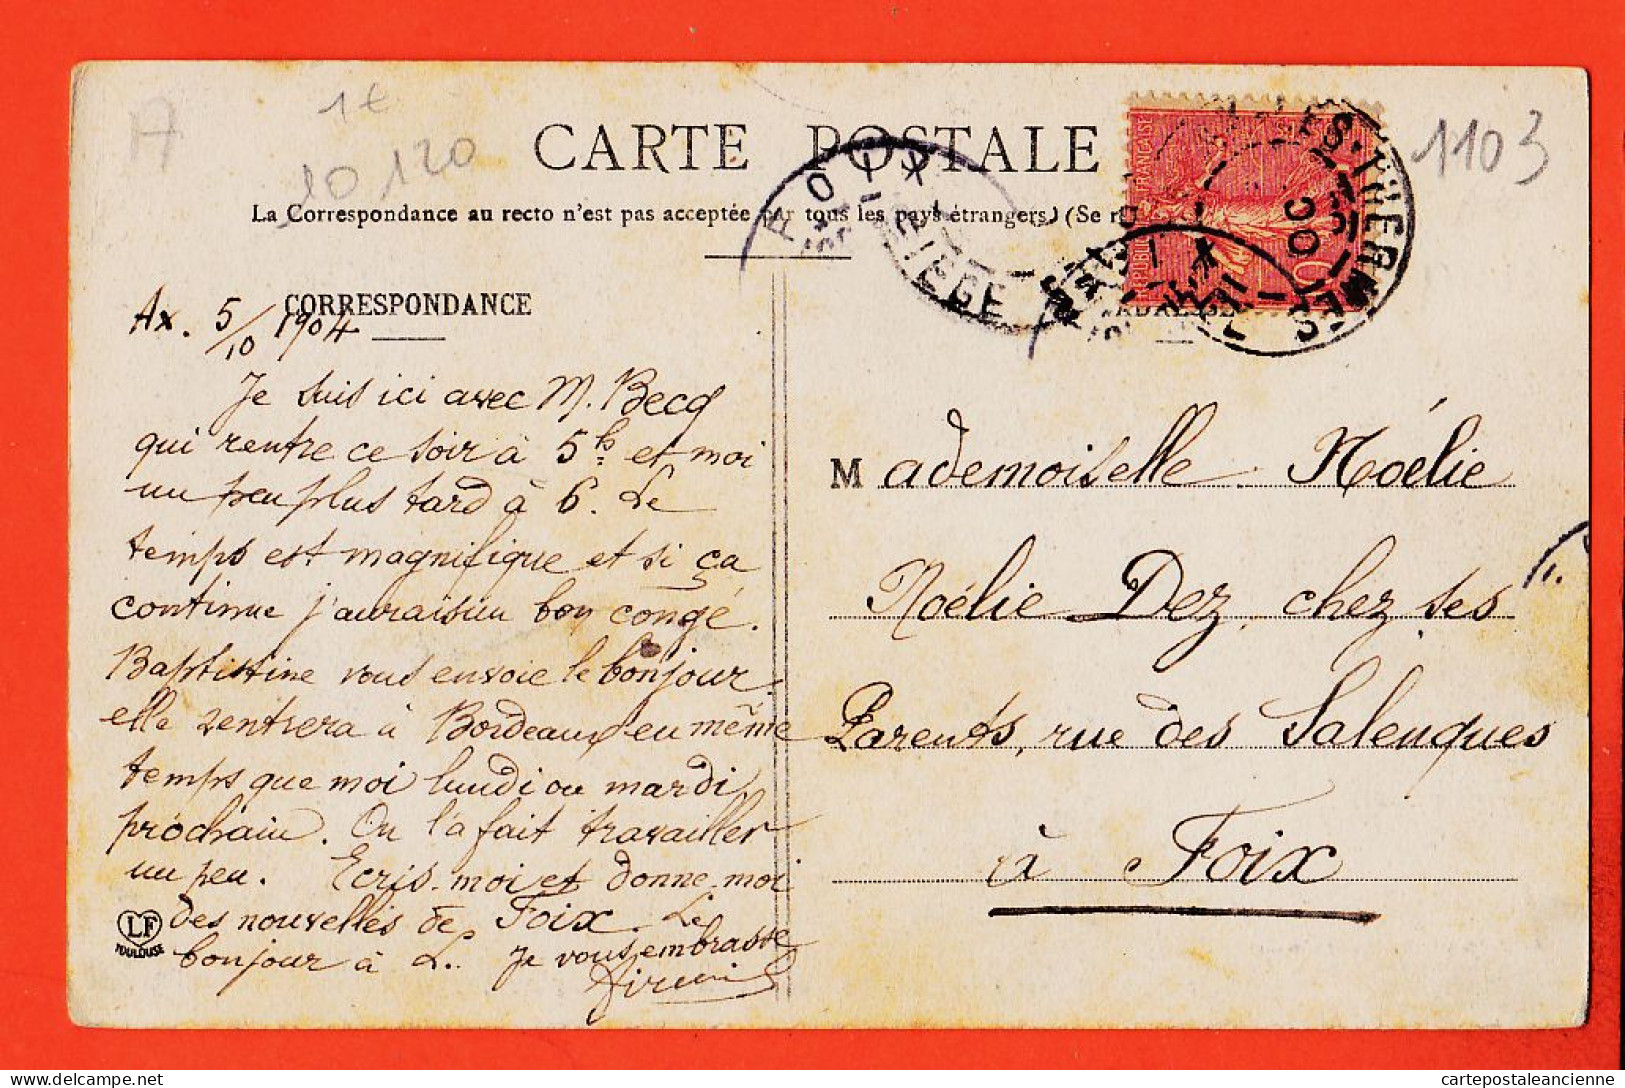 A
1€
10120
1103
CARTE POSTALE
La Correspondance au recto n'est pas acceptée par tous les pays étrangers. (Se r
FOIX
ARIEGE
AX-LES-THERMES
CORRESPONDANCE
Ax. 5/10 1904
Je suis ici avec M. Becq
qui rentre ce soir à 5h et moi
un peu plus tard à 6. Le
temps est magnifique et si ça
continue j'aurais un bon congé.
Baptistine vous envoie le bonjour
elle rentrera à Bordeaux en même
temps que moi lundi ou mardi
prochain. On l'a fait travailler
un peu. Ecris-moi et donne-moi
des nouvelles de Foix. Le
bonjour à L. Je vous embrasse
Firmin
LF
TOULOUSE
Mademoiselle Noélie
Noélie Dez, chez ses
Parents, rue des Salenques
à Foix
cartepostaleancienne